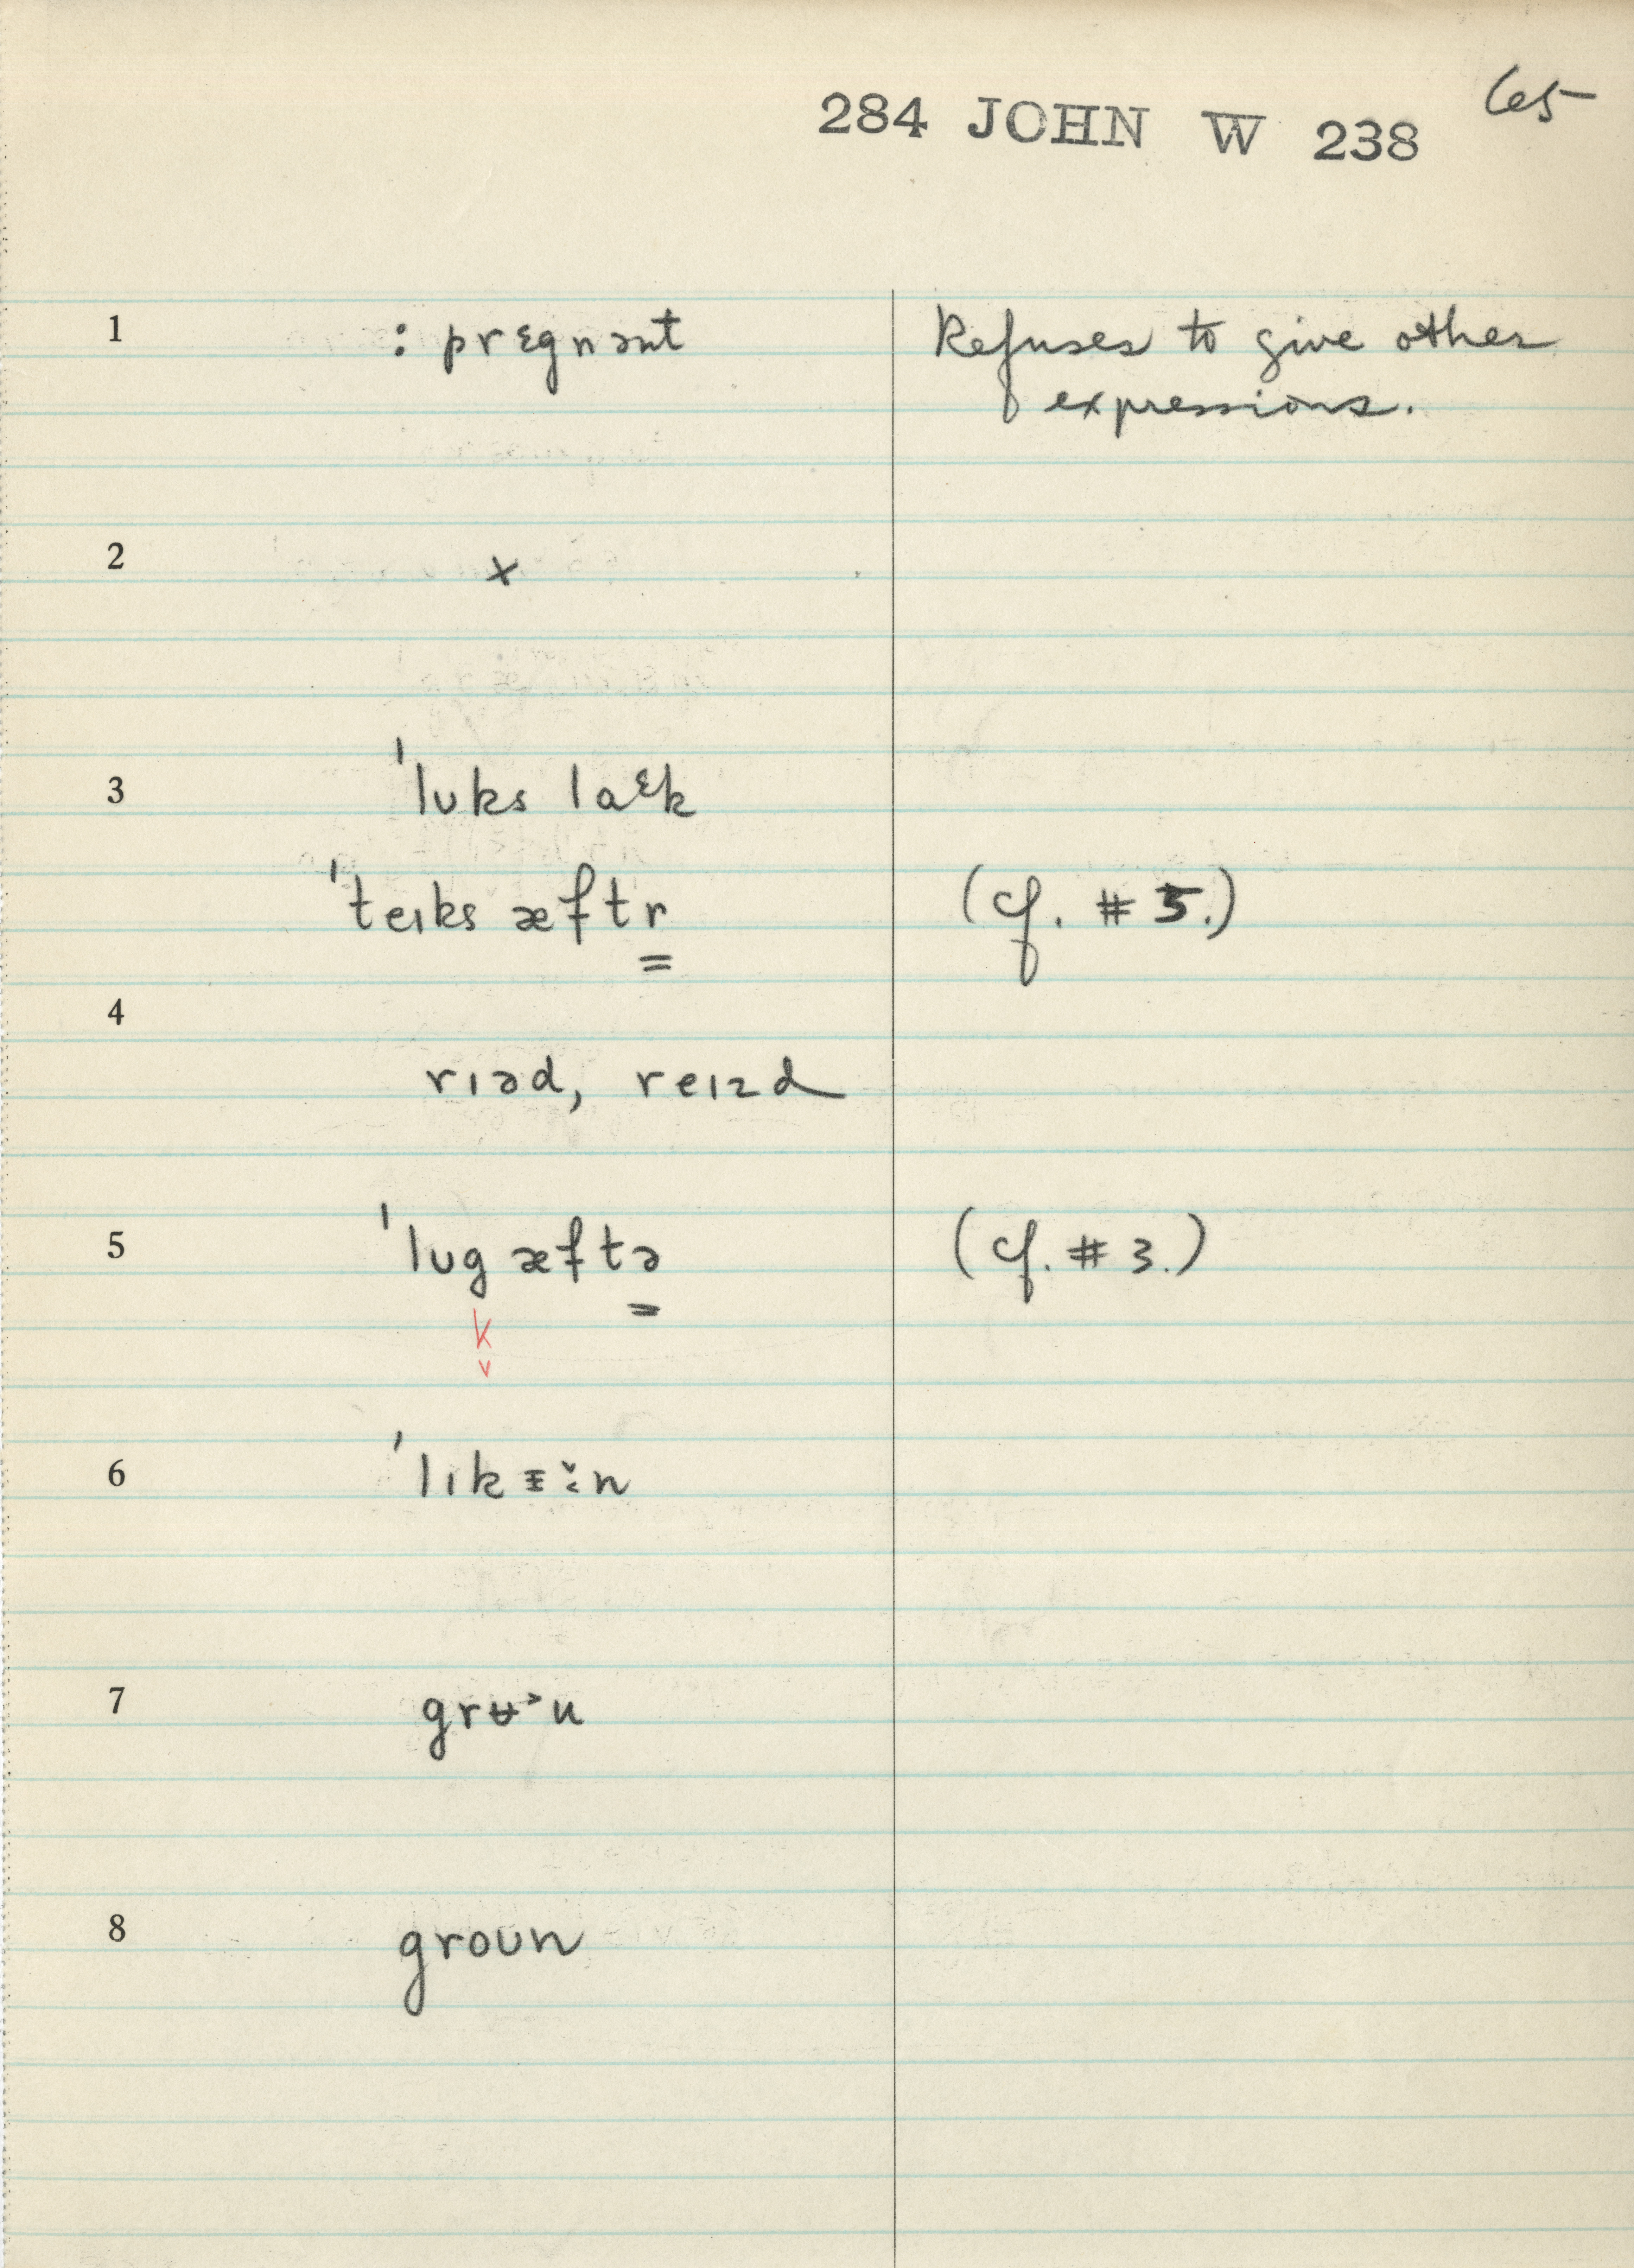 65
284 JOHN W 238
1 : prɛgnənt Refuses to give other
expressions.
2 x
3 ˈlʊks laᵋk
ˈteɪks æftr (cf. #5.)
4
rɪəd, reɪzd
5 ˈlʊg æftə (cf. #3.)
k
v
6 ˈlɪk
7
8 groʊn